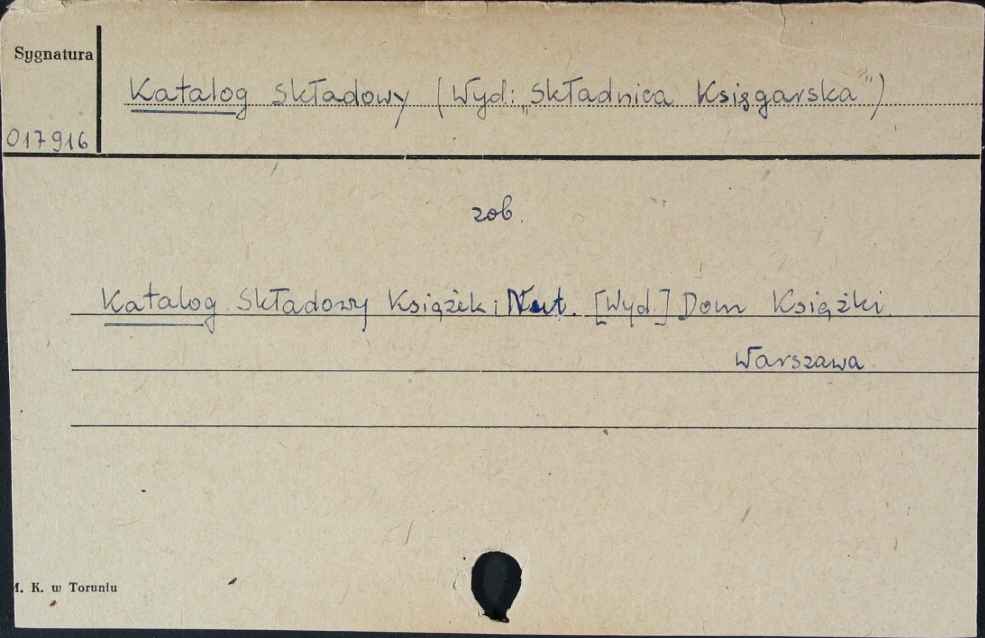 Sygnatura
Katalog Składowy (Wyd: „Składnica Księgarska")
017916
zob.
Katalog Składowy Książek i Nut. [Wyd.] Dom Książki
Warszawa
M. K. w Toruniu